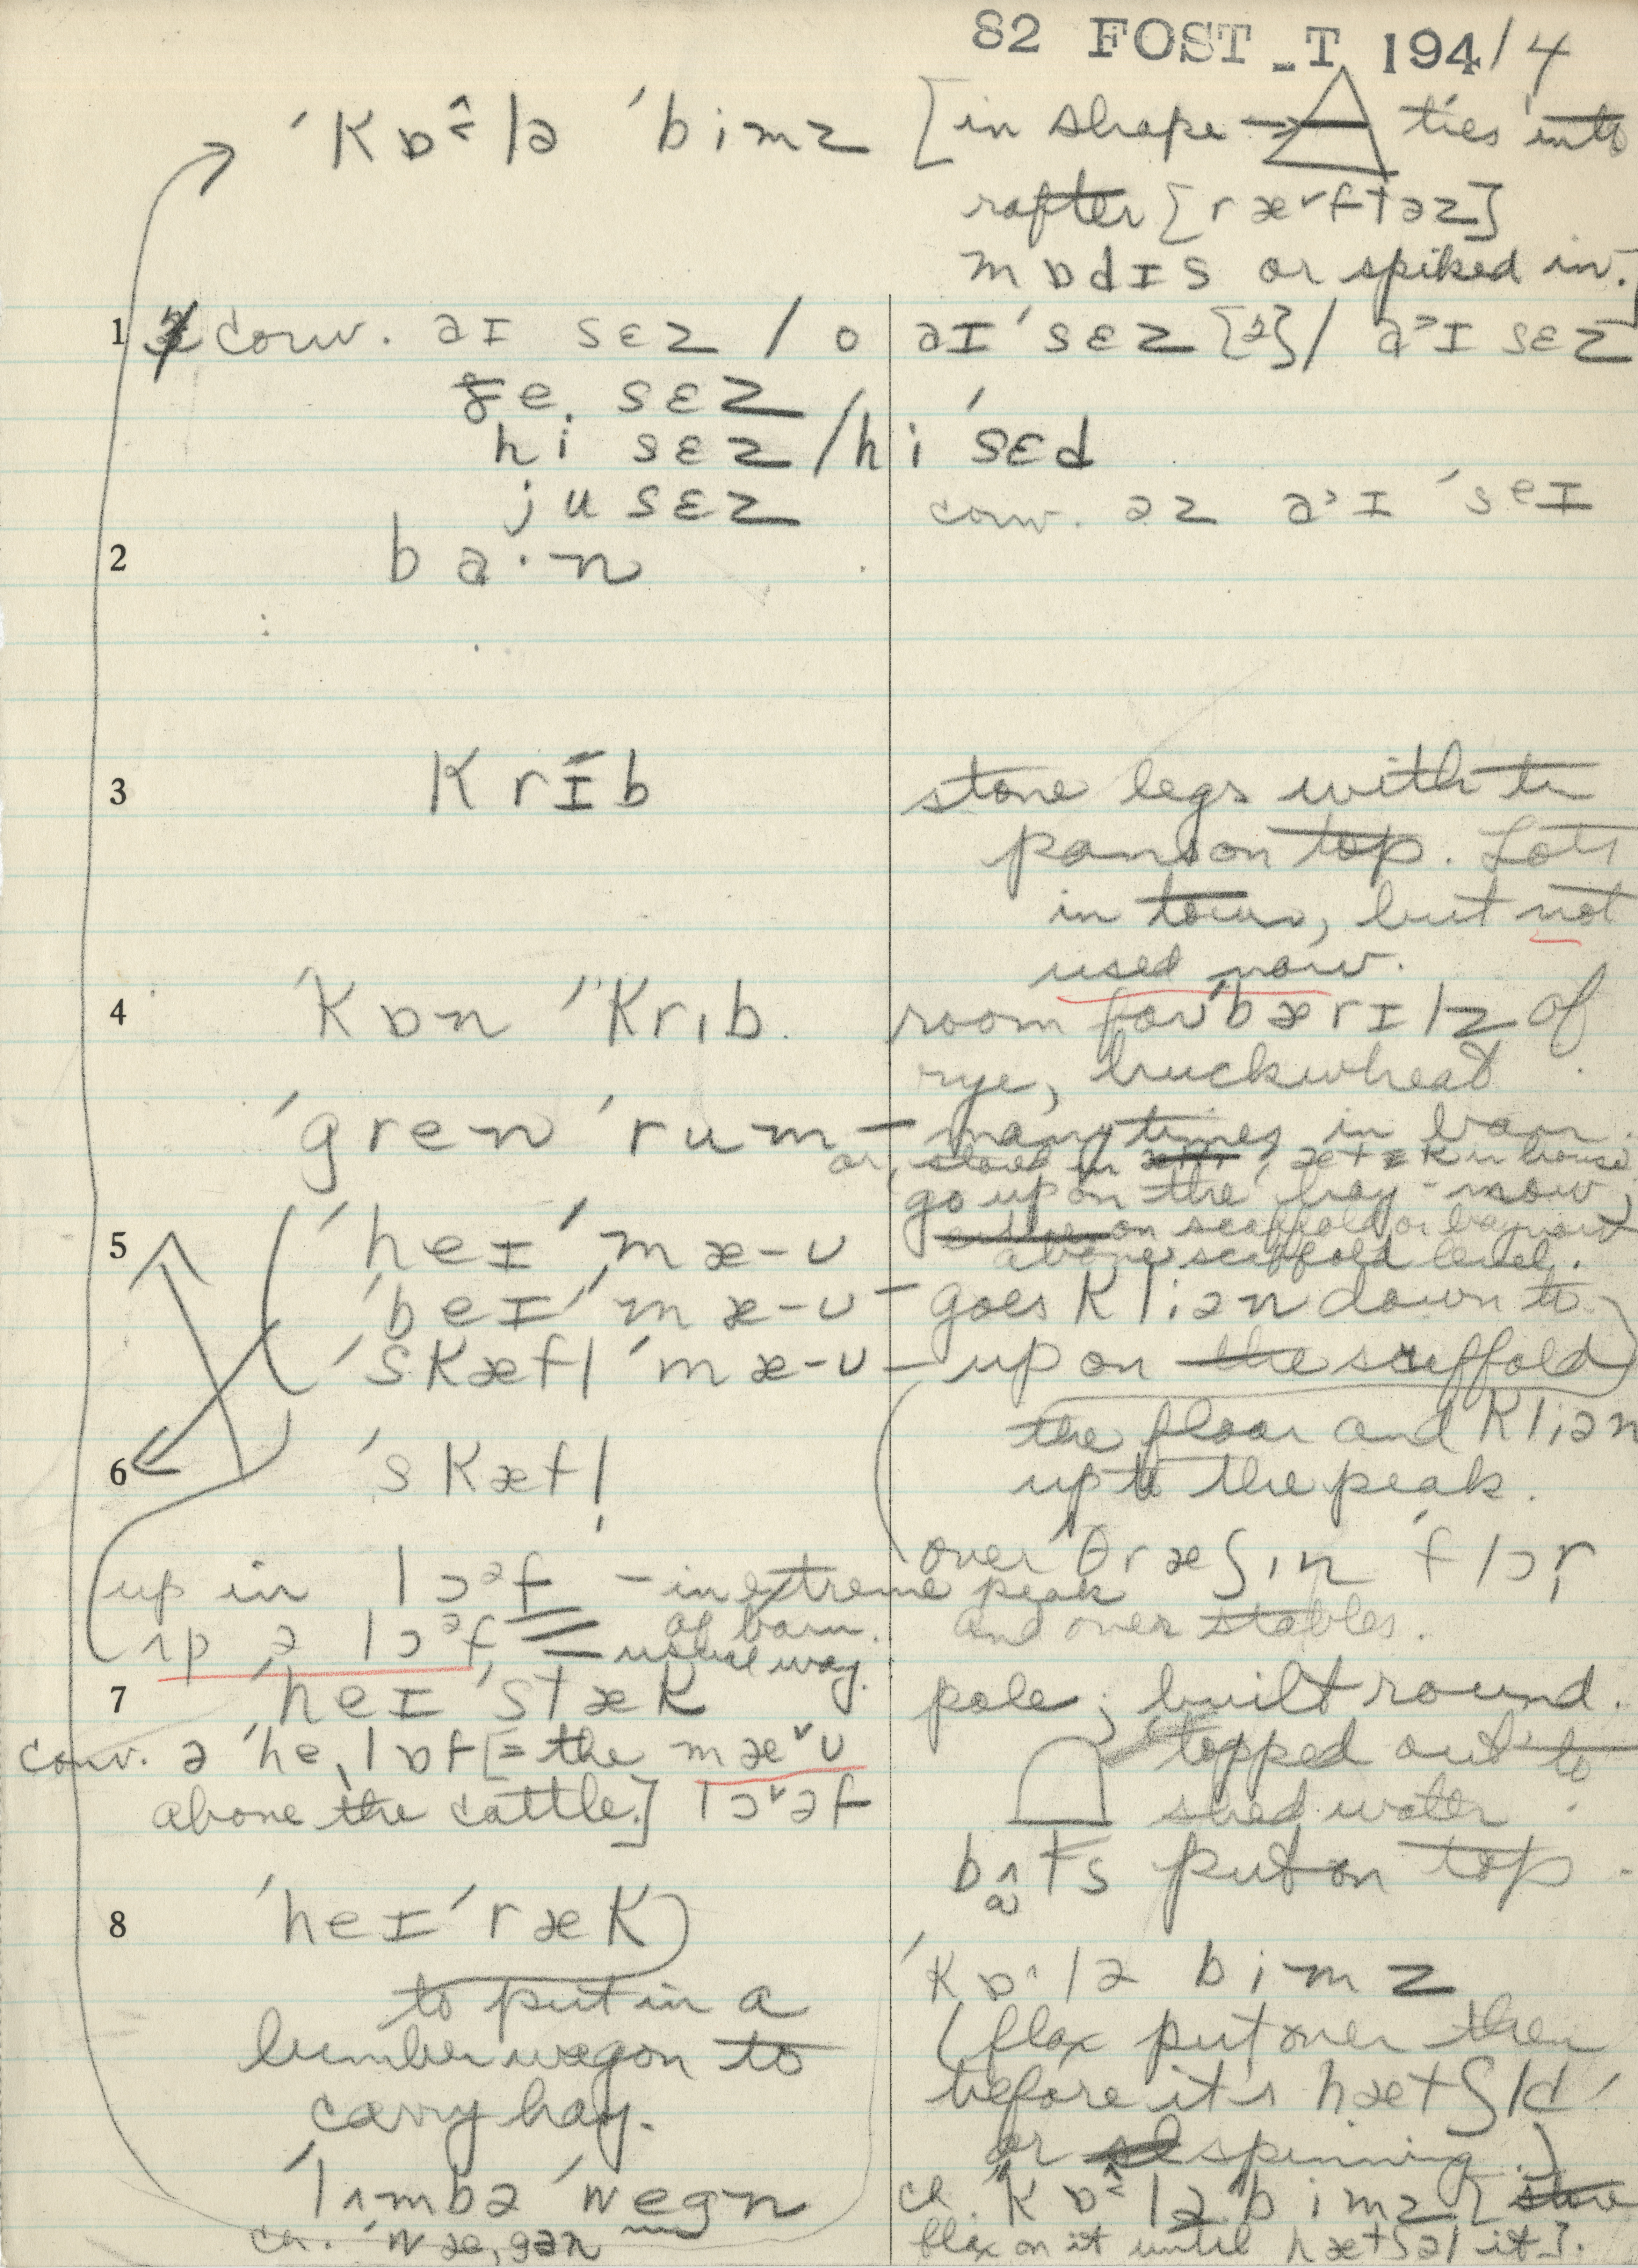 82 FOST_T 194/4
ˈKɒ̂lə ˈbimz [in shape → ties into
rafter [ræ˅ftəz]
mɒdɪs or spiked in.]
1 conv. aɪ sɛz / o aɪ ˈsɛz [2] / aᵊɪ sɛz
ʒe. sɛz
hi sɛz / hi ˈsɛd
ju sɛz conv. əz aᵊɪ ˈseɪ
2 ba·n
3 Krɪb stone legs with tin
pans on top. Lots
in town, but not
used now.
4 ˈKɒn ˈˈKrɪb. room for ˈbærɪlz of
rye, buckwheat
ˈgren ˈrum — many times in barn.
or, stored in ætɪk in house
go up on the hay-mow,
on scaffold or baymow
above scaffold level.
5 ˈheɪ ˈmæ-ʊ
ˈbeɪ ˈmæ-ʊ — goes Kliən down to
ˈsKæfl ˈmæ-ʊ — up on the scaffold
the floor and Kliən
up to the peak.
6 ˈsKæfl
over ˈθræʃɪn ˈflɔr
up in lɔᵊf — in extreme peak
of barn. and over stables.
ʌp ə lɔᵊf = usual way.
7 ˈheɪ ˈstæK pole; built round.
conv. ə ˈheˌlɒf [= the mæ˅ʊ topped out to
above the cattle.] lɔ˅əf shed water.
bʌts put on top.
8 ˈheɪ ˈræK
to put in a
lumber wagon to
carry hay.
ˈlʌmbə ˈwegn
cn. ˈwæˌgən
ˈKɒ·lə bimz
(flax put over then
before it's hætʃld
or spinning.)
cn. ˈKɒ̂lə ˈbimz [
flax on it until hætʃəl it].